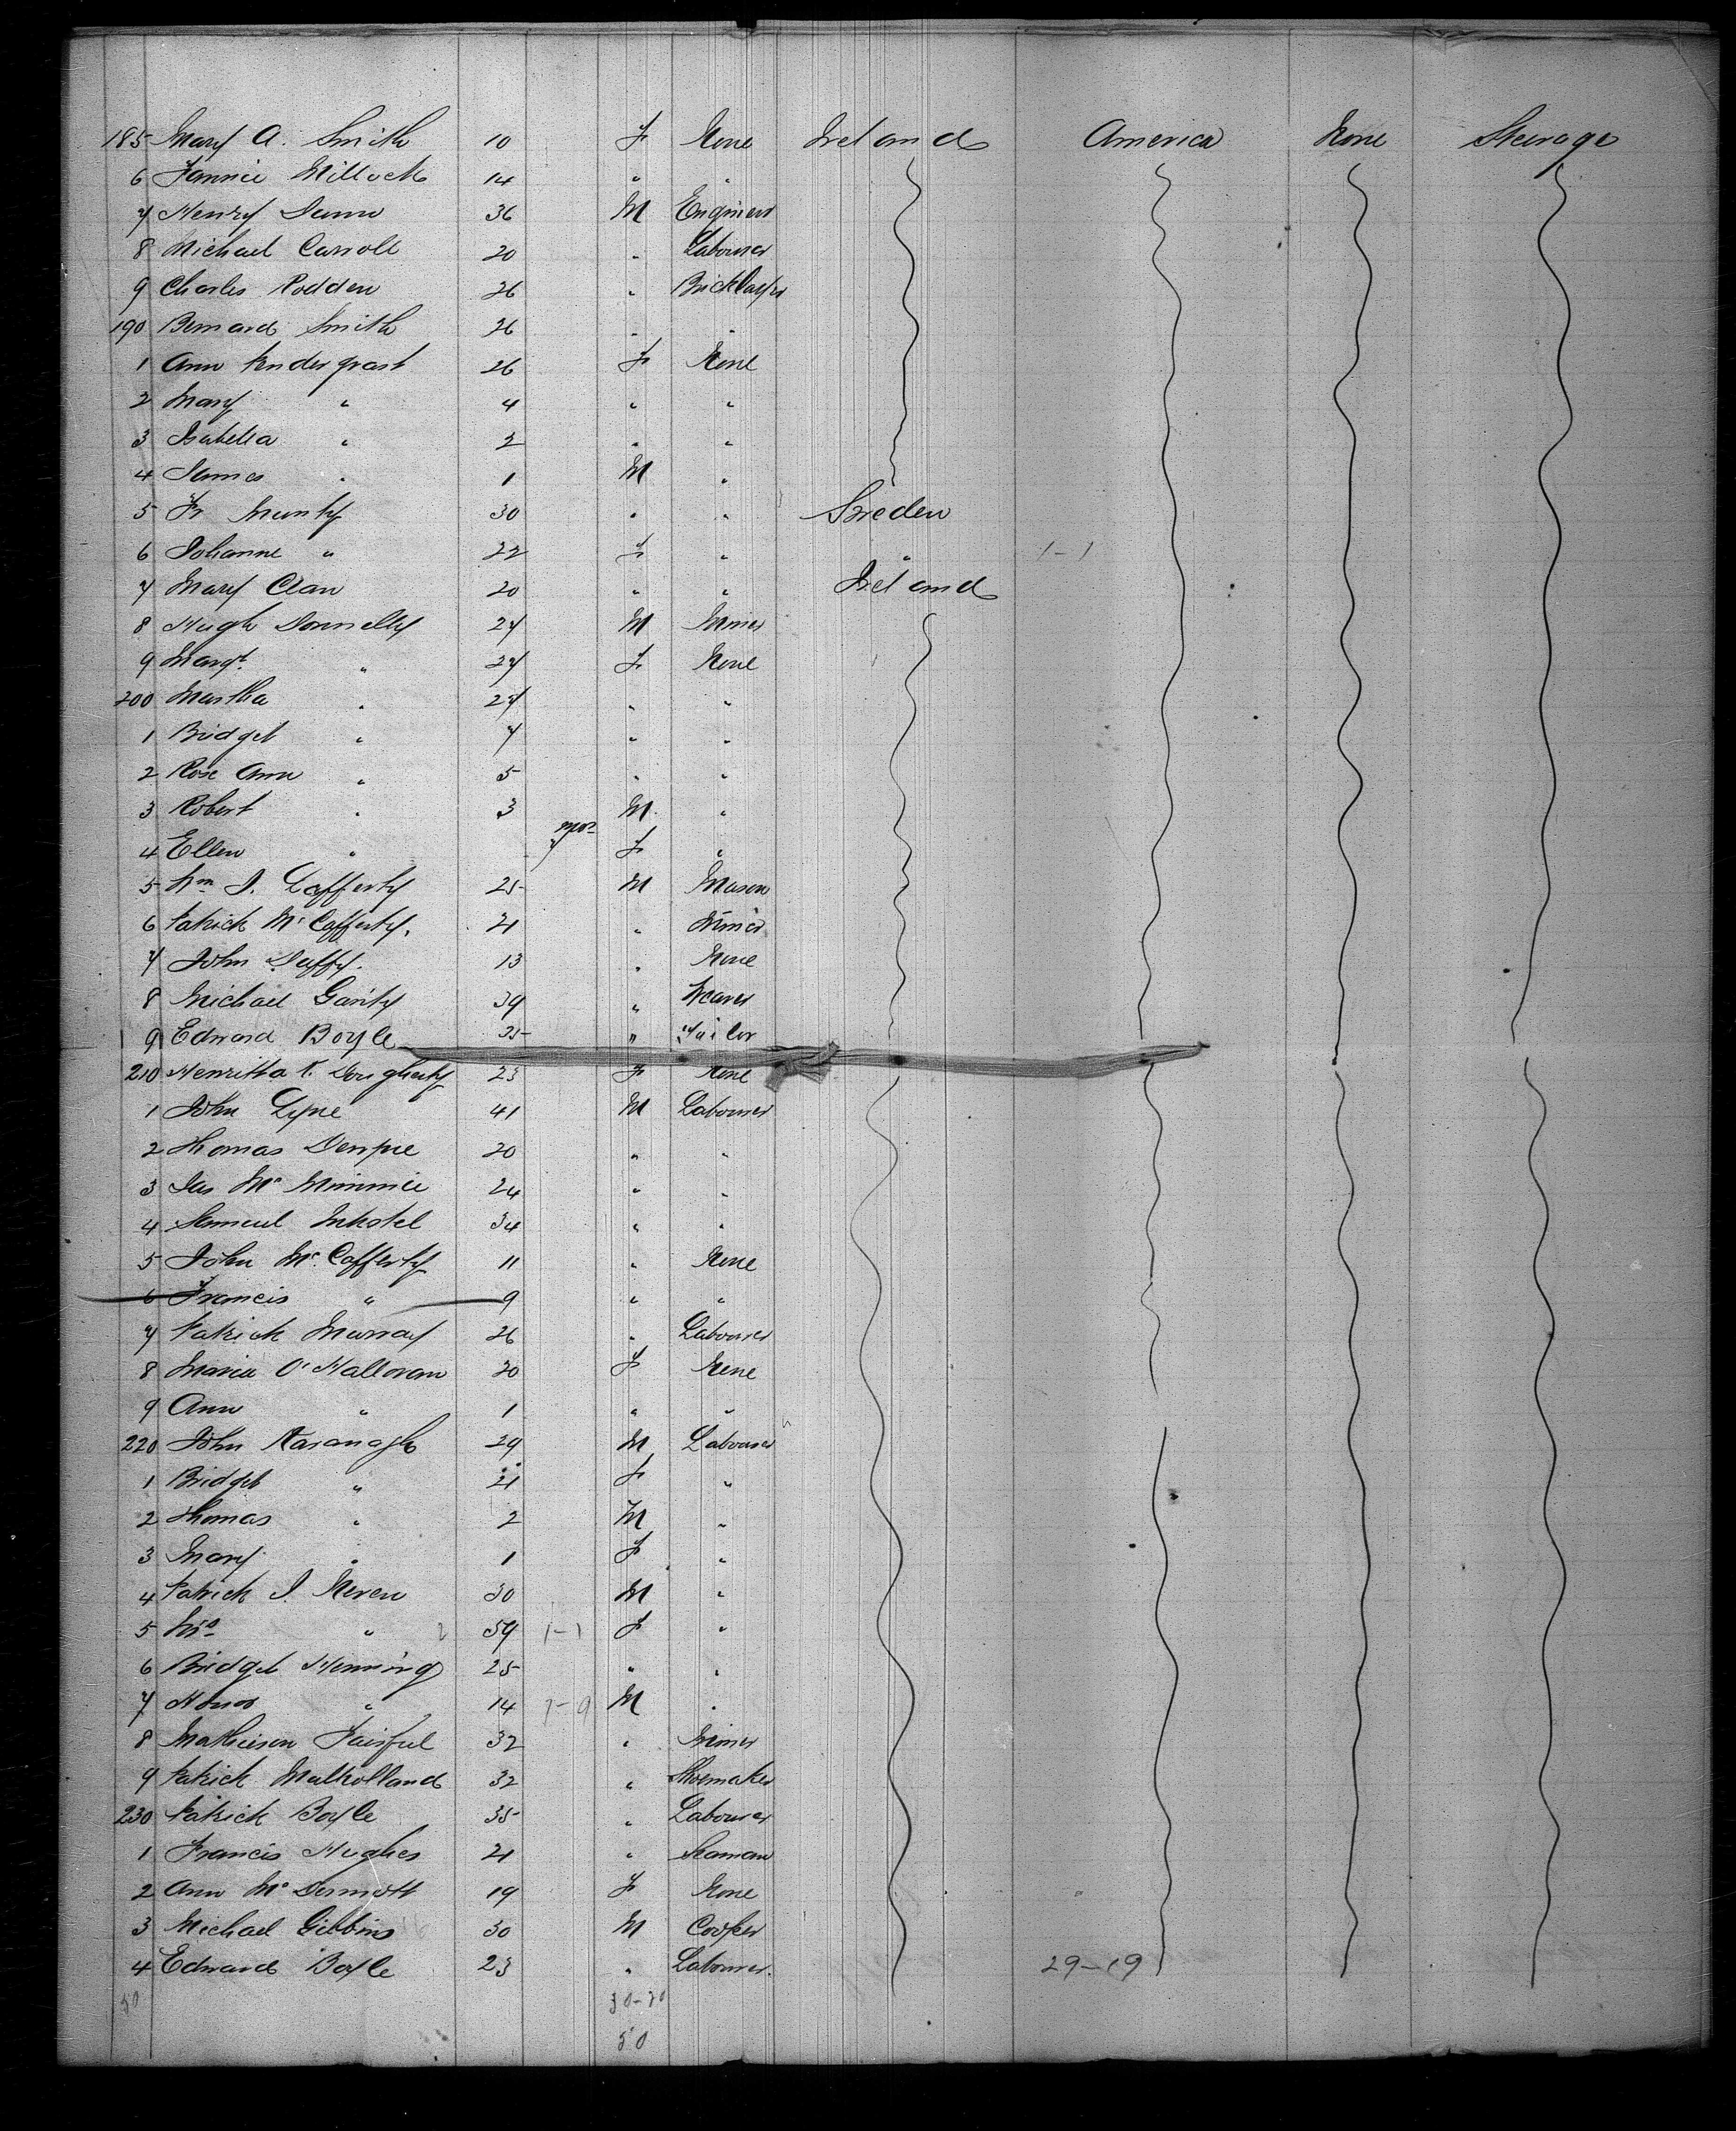 185 Mary A. Smith 10 F None Ireland America None Steerage
6 Fannie Millock 14 " "
7 Henry Dunn 36 M Engineer
8 Michael Carroll 20 " Labourer
9 Charles Rodden 26 " Bricklayer
190 Bernard Smith 26 " "
1 Ann Pendergrast 26 F None
2 Mary " 4 " "
3 Isabella " 2 " "
4 James " 1 M "
5 Fr Munty 30 " " Sweden
6 Johanne " 22 F " " 1-1
7 Mary Clan 20 " " Ireland
8 Hugh Donnelly 27 M Miner
9 Margt. " 27 F None
200 Martha " 27 " "
1 Bridget " 7 " "
2 Rose Ann " 5 " "
3 Robert " 3 M "
4 Ellen " mos F "
5 Wm J. Lafferty 25 M Mason
6 Patrick McCafferty. 21 " Miner
7 John Duffy. 13 " None
8 Michael Garity 39 " Weaver
9 Edward Boyle 35 " Tailor
210 Henritta Dougherty 23 F None
1 John Lyne 41 M Labourer
2 Thomas 20 " "
3 Jas Mc Minnie 24 " "
4 Samuel 34 " "
5 John McCafferty 11 " None
6 Francis " 9 " "
7 Patrick Murray 26 " Labourer
8 Maria O'Halloran 20 F None
9 Ann " 1 " "
220 John Kavanagh 29 M Labourer
1 Bridget " 21 F "
2 Thomas " 2 M "
3 Mary " 1 F "
4 Patrick J. Neven 30 M "
5 Mrs " 59 1-1 F "
6 Bridget Henning 25 " "
7 Honor " 14 M "
8 Mathieson Fairful 32 " Miner
9 Patrick Mulholland 32 " Shoemaker
230 Patrick Boyle 35 " Labourer
1 Francis Hughes 21 " Seaman
2 Ann McDermott 19 F None
3 Michael Gibbins 30 M Cooper
4 Edward Boyle 23 " Labourer. 29-19
50 30-20
50